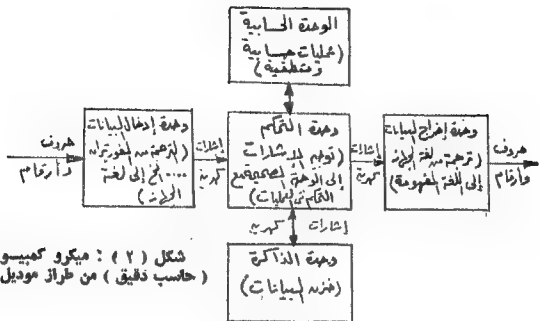 الوحدة الحسابية
(عمليات حسابية
ومنطقية)
حروف
وأرقام
وحدة إدخال البيانات
(ترجمة من الفورتران
.... الخ إلى لغة
الجهاز)
إشارات
كهربية
وحدة التحكم
(توجه الإشارات
إلى الوحدة الصحيحة مع
التحكم في العمليات)
إشارات
كهربية
وحدة إخراج البيانات
(ترجمة من لغة الجهاز
إلى اللغة المفهومة)
حروف
وأرقام
إشارات كهربية
وحدة الذاكرة
(خزن البيانات)
شكل (٢) : ميكرو كمبيو
(حاسب دقيق) من طراز موديل